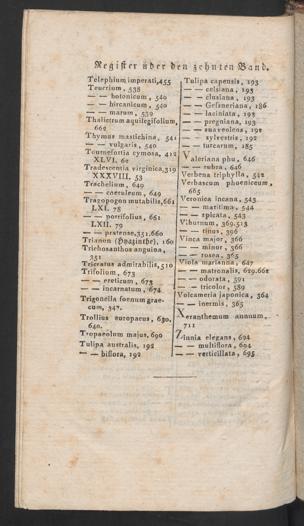 Register über den zehnten Band.
Telephium imperati, 455
Teucrium, 538
— — botonicum, 540
— — hircanicum, 540
— — marum, 539
Thalictrum aquilegifolium,
662
Thymus mastichina, 541
— — vulgaris, 540
Tournefortia cymosa, 412
XLVI, 60
Tradescentia virginica, 319
XXXVIII, 53
Trachelium, 649
— — coeruleum, 649
Tragopogon mutabilis, 661
LXI. 78
— — porrifolius, 661
LXII. 79
— — pratense, 351, 660
Trianon (Hyazinthe), 160
Trichosanthos anguina,
351
Triceratus admirabilis, 510
Trifolium, 673
— — ereticum, 673
— — incarnatum, 674
Trigonella foenum grae-
cum, 347.
Trollius europaeus, 630,
640.
Tropaeolum majus, 690
Tulipa australis, 192
— — biflora, 192
Tulipa capensis, 193
— — celsiana, 193
— — clusiana, 193
— — Gesneriana, 186
— — laciniata, 193
— — pregnina, 193
— — suaveolens, 192
— — sylvestris, 192
— — turcarum, 185
Valeriana phu, 646
— — rubra, 646
Verbena triphylla, 542
Verbascum phoeniceum,
665
Veronica incana, 543
— — maritima, 544
— — spicata, 543
Viburnum, 369. 513
— — tinus, 396
Vinca major, 366
— — minor, 366
— — rosea, 365
Viola marianna, 647
— — matronalis, 629. 662
— — odorata, 391
— — tricolor, 389
Volcameria japonica, 364
— — inermis, 363
Xeranthemum annuum,
711
Zinnia elegans, 694
— — multiflora, 694
— — verticillata, 695